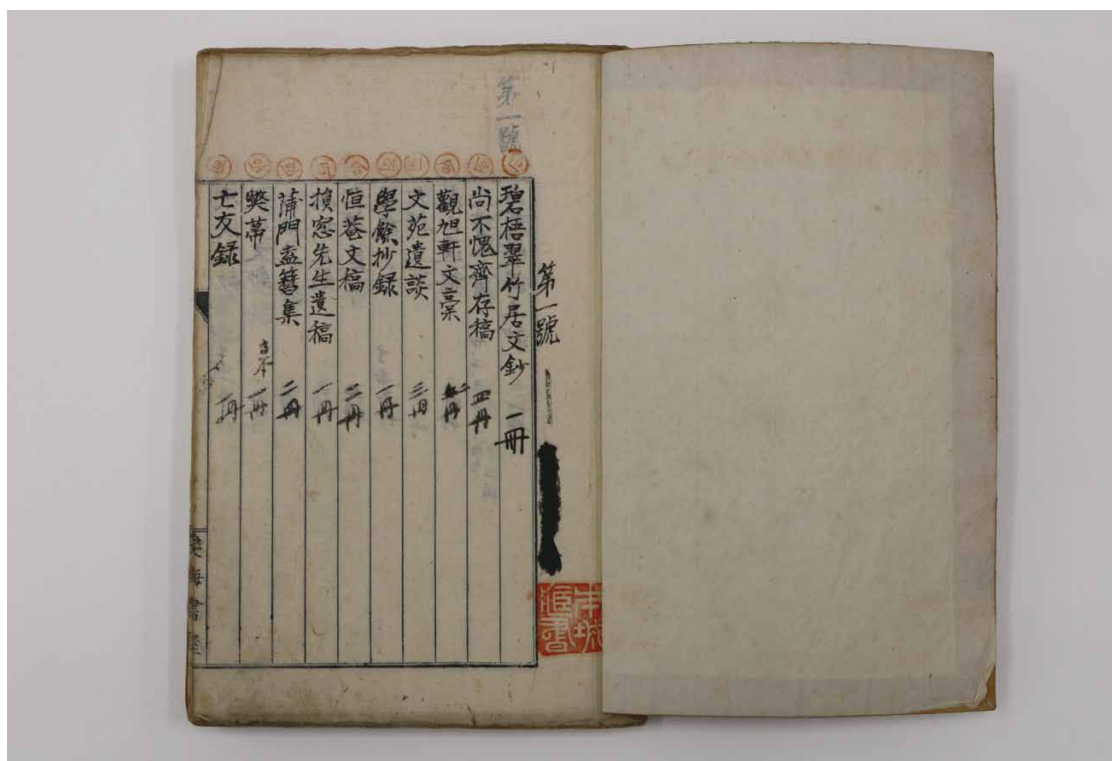 第一號
第一號
碧梧翠竹居文鈔 一冊
尚不愧齋存稿 四冊
觀旭軒文稾
文苑遺談 三冊
學餘抄錄 一冊
恒菴文稿 二冊
損窓先生遺稿 一冊
蒲門盍簪集 二冊
弊帚 一冊
亡友錄 一冊